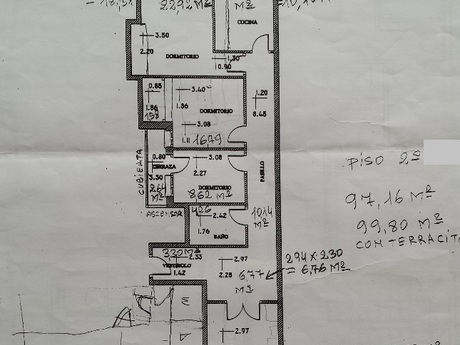 22,92 M²
M²
COCINA
3.50
2.20
DORMITORIO
1.30
0.90
0.88
1.86
3.40
1.86
DORMITORIO
1.20
8.48
3.08
1.11
1679
CUBIERTA
0.80
TERRAZA
3.08
2.27
3.30
264
M²
DORMITORIO
8,62 M²
PASILLO
PISO 2º
97,16 M²
99,80 M²
CON TERRACIT
ASCENSOR
426
2.42
1.76
BAÑO
1014
M²
3,30 M²
2.33
VESTIBULO
1.42
2.97
2.28
6,77
M²
294 x 2.30
= 6,76 M²
2.97